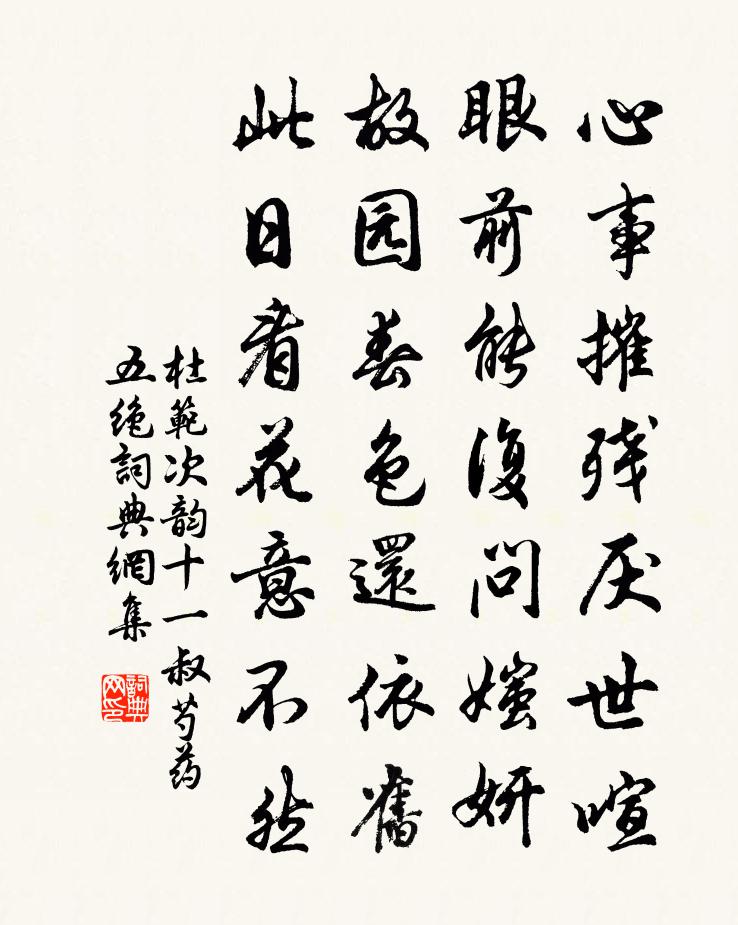 心事摧残厌世喧
眼前能復问媸妍
故园春色還依舊
此日看花意不然
杜範次韵十一叔芍药
五绝詞典網集
詞典网印